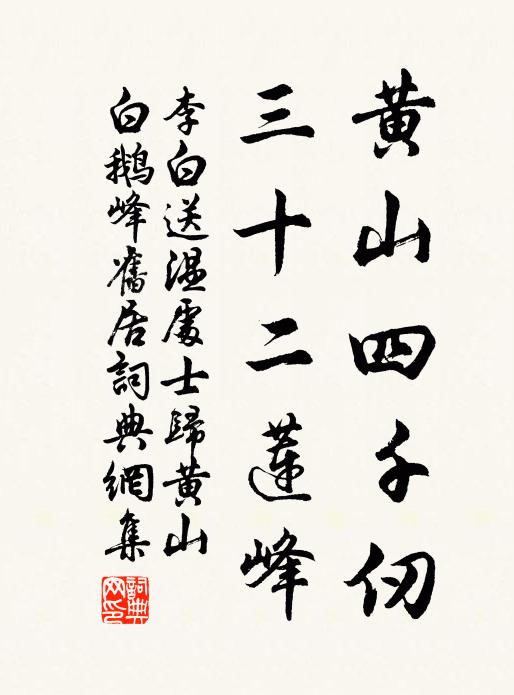 黄山四千仞
三十二蓮峰
李白送温處士歸黄山
白鵝峰舊居詞典網集
詞典網印